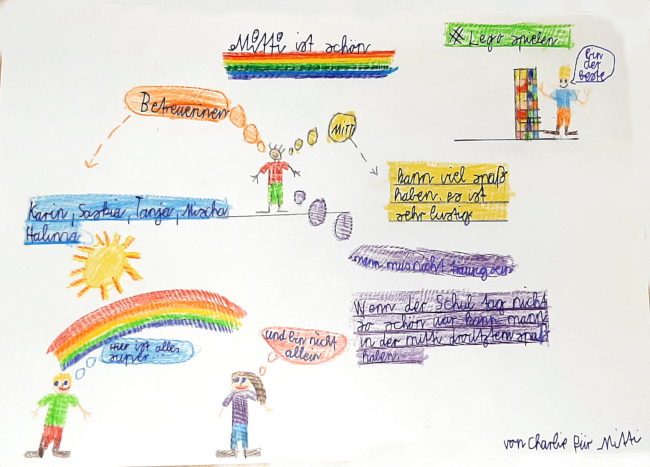 Mitti ist schön
Lego spielen
bin
der
beste
Betreuerinnen
Mitti
kann viel spaß
haben es ist
sehr lustig
Karin, Saskia, Tanja, Mischa
Halima
mann mus nicht traurig sein
Wenn der Schul tag nicht
so schön war kann mann
in der mitti trotztem spaß
haben
Hier ist alles
super
und bin nicht
allein
von Charlie für Mitti